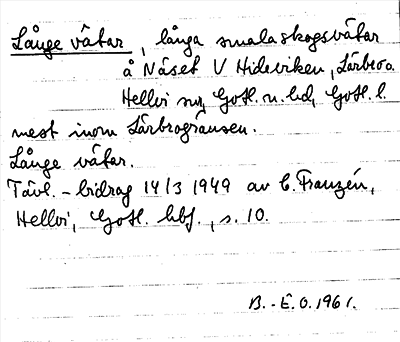 Långe vätar, långa smala skogsvätar
å Näset V Hideviken, Lärbro o.
Hellvi snr, Gotl. n. hd, Gotl. l.
mest inom Lärbrogränsen.
Långe vätar.
Tävl.-bidrag 14/3 1949 av C. Franzén,
Hellvi, Gotl. hbf., s. 10.
B.-E.O. 1961.